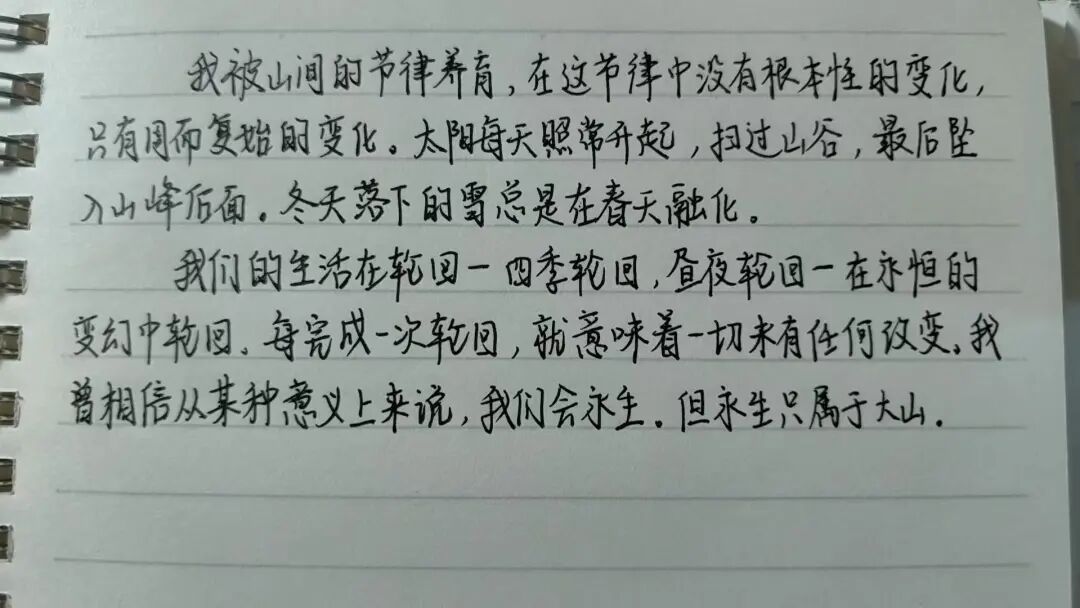 我被山间的节律养育,在这节律中没有根本性的变化,
只有周而复始的变化。太阳每天照常升起,扫过山谷,最后坠
入山峰后面。冬天落下的雪总是在春天融化。
我们的生活在轮回一四季轮回,昼夜轮回一在永恒的
变幻中轮回。每完成一次轮回,就意味着一切未有任何改变。我
曾相信从某种意义上来说,我们会永生。但永生只属于大山.